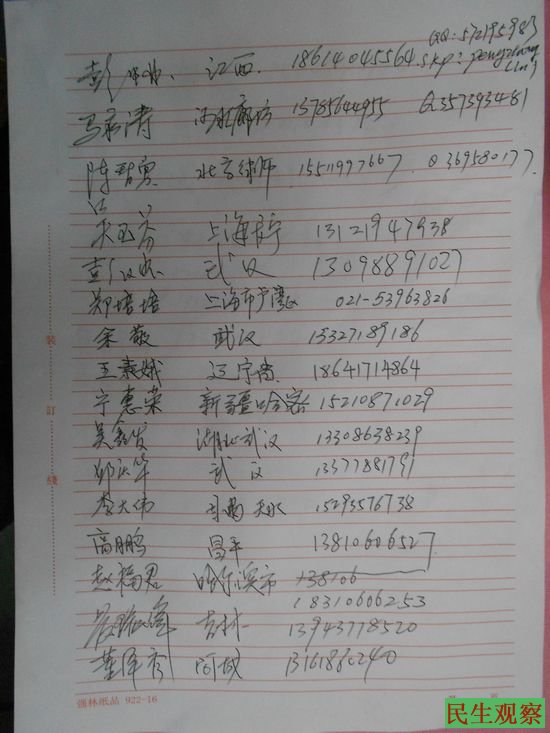 QQ: 572195983
彭 江西. 18614045564. skp: pengzhong
马永涛 河北廊坊 13785644955 Q 357393481
陈智勇 北京律师 15511997667. Q 369580177.
宋玉芬 上海长宁 13121947938
彭汉 武汉 13098891027
郑培培 上海市卢湾区 021-53963826
余敬 武汉 13327189186
王素娥 辽宁省 18641714864
宁惠荣 新疆哈密 15210871029
吴鑫发 湖北武汉 13308638239
邹 华 武汉 13377881791
李大伟 甘肃天水 15293576738
高鹏 昌平 13810606527
赵福君 哈尔滨市 138106
18310606253
吉林 13943778520
董泽 13161880240
装
订
线
强林纸品 922-16
民生观察